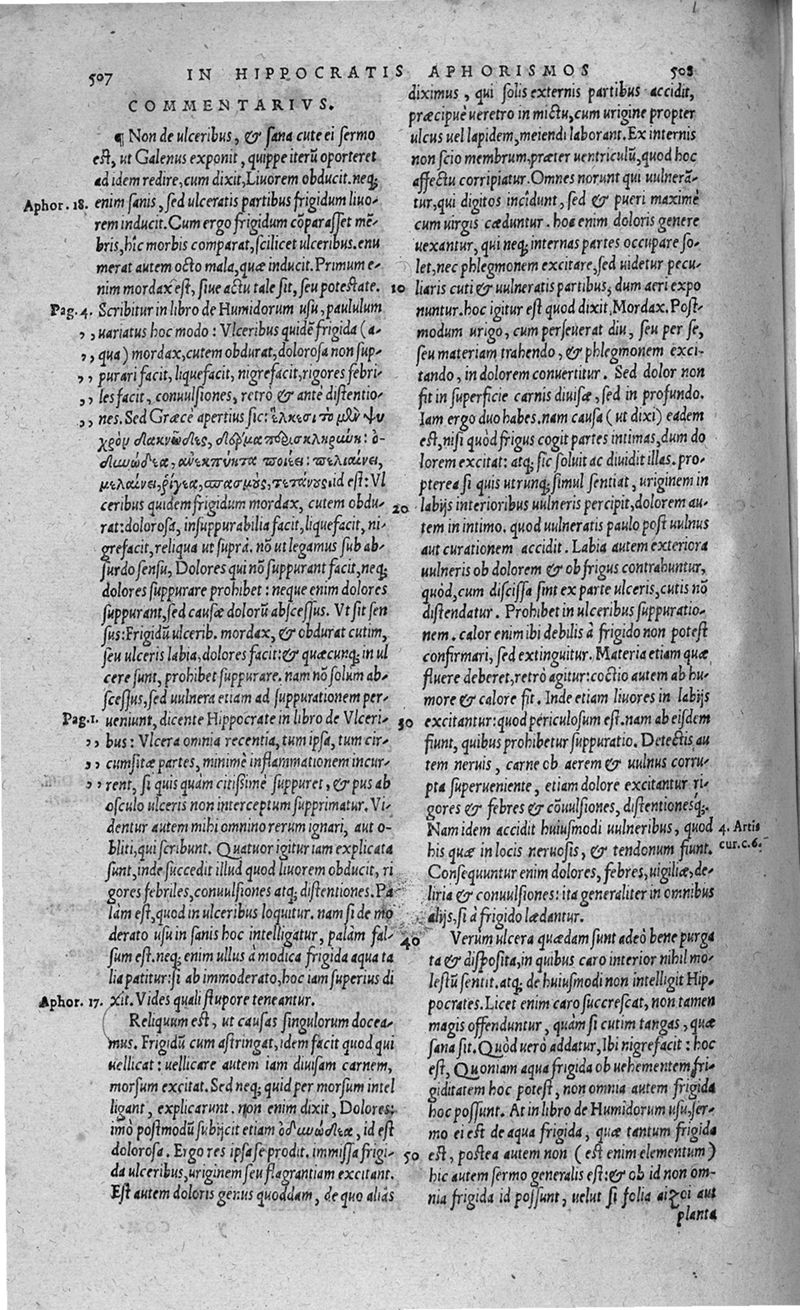 507 IN HIPPOCRATIS APHORISMOS 508
COMMENTARIVS.
¶ Non de ulceribus, & sana cute ei sermo
est, ut Galenus exponit, quippe iterū oporteret
ad idem redire, cum dixit, Liuorem obducit. neq;
Aphor. 18. enim sanis, sed ulceratis partibus frigidum liuo-
rem inducit. Cum ergo frigidum cōparasset mē-
bris, hîc morbis comparat, scilicet ulceribus. enu
merat autem octo mala, quæ inducit. Primum e-
nim mordax est, siue actu tale sit, seu potestate.
Pag. 4. Scribitur in libro de Humidorum usu, paululum
,, uariatus hoc modo: Vlceribus quidē frigida (a-
,, qua) mordax, cutem obdurat, dolorosa non sup-
,, purari facit, liquefacit, nigrefacit, rigores febri-
,, les facit, conuulsiones, retrò & ante distentio-
,, nes. Sed Græcè apertius sic: ἕλκεσι τὸ μὲν ψυ
χρὸν δακνῶδες, δέρμα περισκληρύνει: ὀ-
δυνώδεα, ἀνεκπύητα ποιέει: πελιαίνει,
μελαίνει, ῥίγεα, σπασμός, τετάνους. id est: Vl
ceribus quidem frigidum mordax, cutem obdu-
rat: dolorosa, insuppurabilia facit, liquefacit, ni-
grefacit, reliqua ut suprà. nō ut legamus sub ab-
surdo sensu, Dolores qui nō suppurant facit, neq;
dolores suppurare prohibet: neque enim dolores
suppurant, sed causæ dolorū abscessus. Vt sit sen
sus: Frigidū ulcerib. mordax, & obdurat cutim,
seu ulceris labia, dolores facit: & quæcunq; in ul
cere sunt, prohibet suppurare. nam nō solum ab-
scessus, sed uulnera etiam ad suppurationem per-
Pag. 1. ueniunt, dicente Hippocrate in libro de Vlceri-
,, bus: Vlcera omnia recentia, tum ipsa, tum cir-
,, cumsitæ partes, minimè inflammationem incur-
,, rent, si quis quàm citissimè suppuret, & pus ab
osculo ulceris non interceptum supprimatur. Vi-
dentur autem mihi omnino rerum ignari, aut o-
bliti, qui scribunt. Quatuor igitur iam explicata
sunt, inde succedit illud quod liuorem obducit, ri
gores febriles, conuulsiones atq; distentiones. Pa
làm est, quod in ulceribus loquitur. nam si de mo
derato usu in sanis hoc intelligatur, palàm fal-
sum est. neq; enim ullus à modica frigida aqua ta
lia patitur: si ab immoderato, hoc iam superius di
Aphor. 17. xit. Vides quali stupore teneantur.
Reliquum est, ut causas singulorum docea-
mus. Frigidū cum astringat, idem facit quod qui
uellicat: uellicare autem iam diuisam carnem,
morsum excitat. Sed neq; quid per morsum intel
ligant, explicarunt. non enim dixit, Dolores:
imò postmodū subijcit etiam ὀδυνώδεα, id est
dolorosa. Ergo res ipsa se prodit. immissa frigi-
da ulceribus, uriginem seu flagrantiam excitant.
Est autem doloris genus quoddam, de quo aliàs
diximus, qui solis externis partibus accidit,
præcipuè ueretro in mictu, cum urigine propter
ulcus uel lapidem, meiendi laborant. Ex internis
non scio membrum, præter uentriculū, quod hoc
affectu corripiatur. Omnes norunt qui uulnerā-
tur, qui digitos incidunt, sed & pueri maximè
cum uirgis cæduntur. hoc enim doloris genere
uexantur, qui neq; internas partes occupare so-
let, nec phlegmonem excitare, sed uidetur pecu-
10 liaris cuti & uulneratis partibus, dum aeri expo
nuntur. hoc igitur est quod dixit, Mordax. Post-
modum urigo, cum perseuerat diu, seu per se,
seu materiam trahendo, & phlegmonem exci-
tando, in dolorem conuertitur. Sed dolor non
fit in superficie carnis diuisæ, sed in profundo.
Iam ergo duo habes. nam causa (ut dixi) eadem
est, nisi quòd frigus cogit partes intimas, dum do
lorem excitat: atq; sic soluit ac diuidit illas. pro-
pterea si quis utrunq; simul sentiat, uriginem in
20 labijs interioribus uulneris percipit, dolorem au-
tem in intimo. quod uulneratis paulo post uulnus
aut curationem accidit. Labia autem exteriora
uulneris ob dolorem & ob frigus contrahuntur,
quòd, cum discissa sint ex parte ulceris, cutis nō
distendatur. Prohibet in ulceribus suppuratio-
nem. calor enim ibi debilis à frigido non potest
confirmari, sed extinguitur. Materia etiam quæ
fluere deberet, retrò agitur: coctio autem ab hu-
more & calore fit. Inde etiam liuores in labijs
30 excitantur: quod periculosum est. nam ab eisdem
fiunt, quibus prohibetur suppuratio. Detectis au
tem neruis, carne ob aerem & uulnus corru-
pta superueniente, etiam dolore excitantur ri-
gores & febres & cōuulsiones, distentionesq;.
Nam idem accidit huiusmodi uulneribus, quod 4. Artis
his quæ in locis neruosis, & tendonum fiunt. cur. c. 6.
Consequuntur enim dolores, febres, uigiliæ, de-
liria & conuulsiones: ita generaliter in omnibus
alijs, si à frigido lædantur.
40 Verum ulcera quædam sunt adeò bene purga
ta & disposita, in quibus caro interior nihil mo-
lestū sentit. atq; de huiusmodi non intelligit Hip-
pocrates. Licet enim caro succrescat, non tamen
magis offenduntur, quàm si cutim tangas, quæ
sana sit. Quòd uerò addatur, Ibi nigrefacit: hoc
est, Quoniam aqua frigida ob uehementem fri-
giditatem hoc potest, non omnia autem frigida
hoc possunt. At in libro de Humidorum usu, ser-
mo ei est de aqua frigida, quæ tantum frigida
50 est, postea autem non (est enim elementum)
hic autem sermo generalis est: & ob id non om-
nia frigida id possunt, uelut si folia aizoi aut
planta